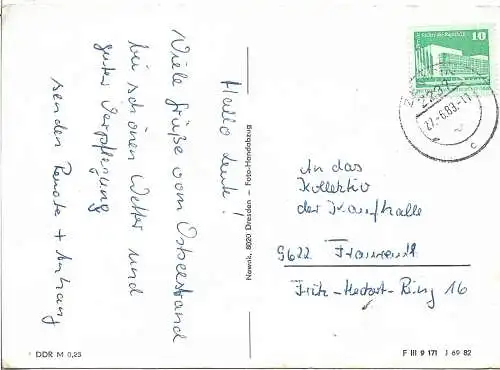 Hallo Leute!
Viele Grüße vom Ostseestrand
bei schönen Wetter und
guter Verpflegung
senden Renate + Anhang
Nowak, 8020 Dresden - Foto-Handabzug
10
2237
27.-6.83.-11
c
An das
Kollektiv
der Kaufhalle
9622
Fritz-Heckert-Ring 16
DDR M 0,25
F III 9 171 J 69 82